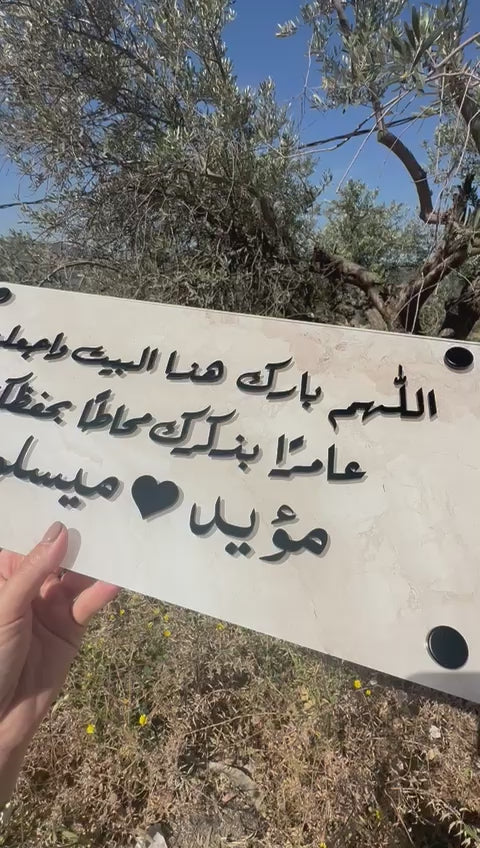 اللهم بارك هذا البيت واجعله
عامرًا بذكرك محاطًا بحفظك
مؤيد ♥